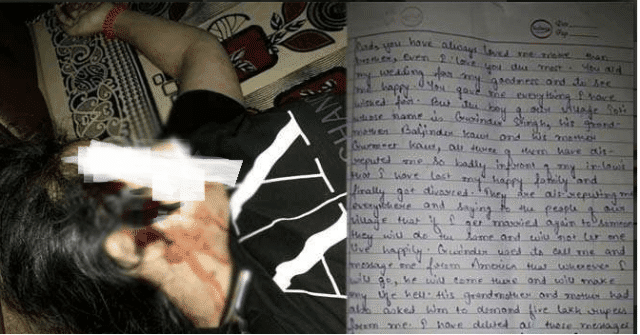 CHANG
Dads you have always loved me more than
brother, even I love you du most. You did
my wedding for my goodness and to see
me happy. You gave me everything I have
wished for. But du boy of our village
whose name is Gurinder Singh, his grand-
mother Baljinder Kaur and his mother
Gurmeet Kaur, all three of them have dis-
reputed me so badly infront of my in-laws
that I have lost my happy family and
finally got divorced. They are dis-reputing me
everywhere and saying to the people of our
village that if I get married again to someone
they will do the same and will not let me
live happily. Gurinder used to call me and
message me from America that wherever I
will go, he will come there and will make
my life hell. His grandmother and mother had
also asked him to demand five lakh rupees
from me. I have deleted all those messages